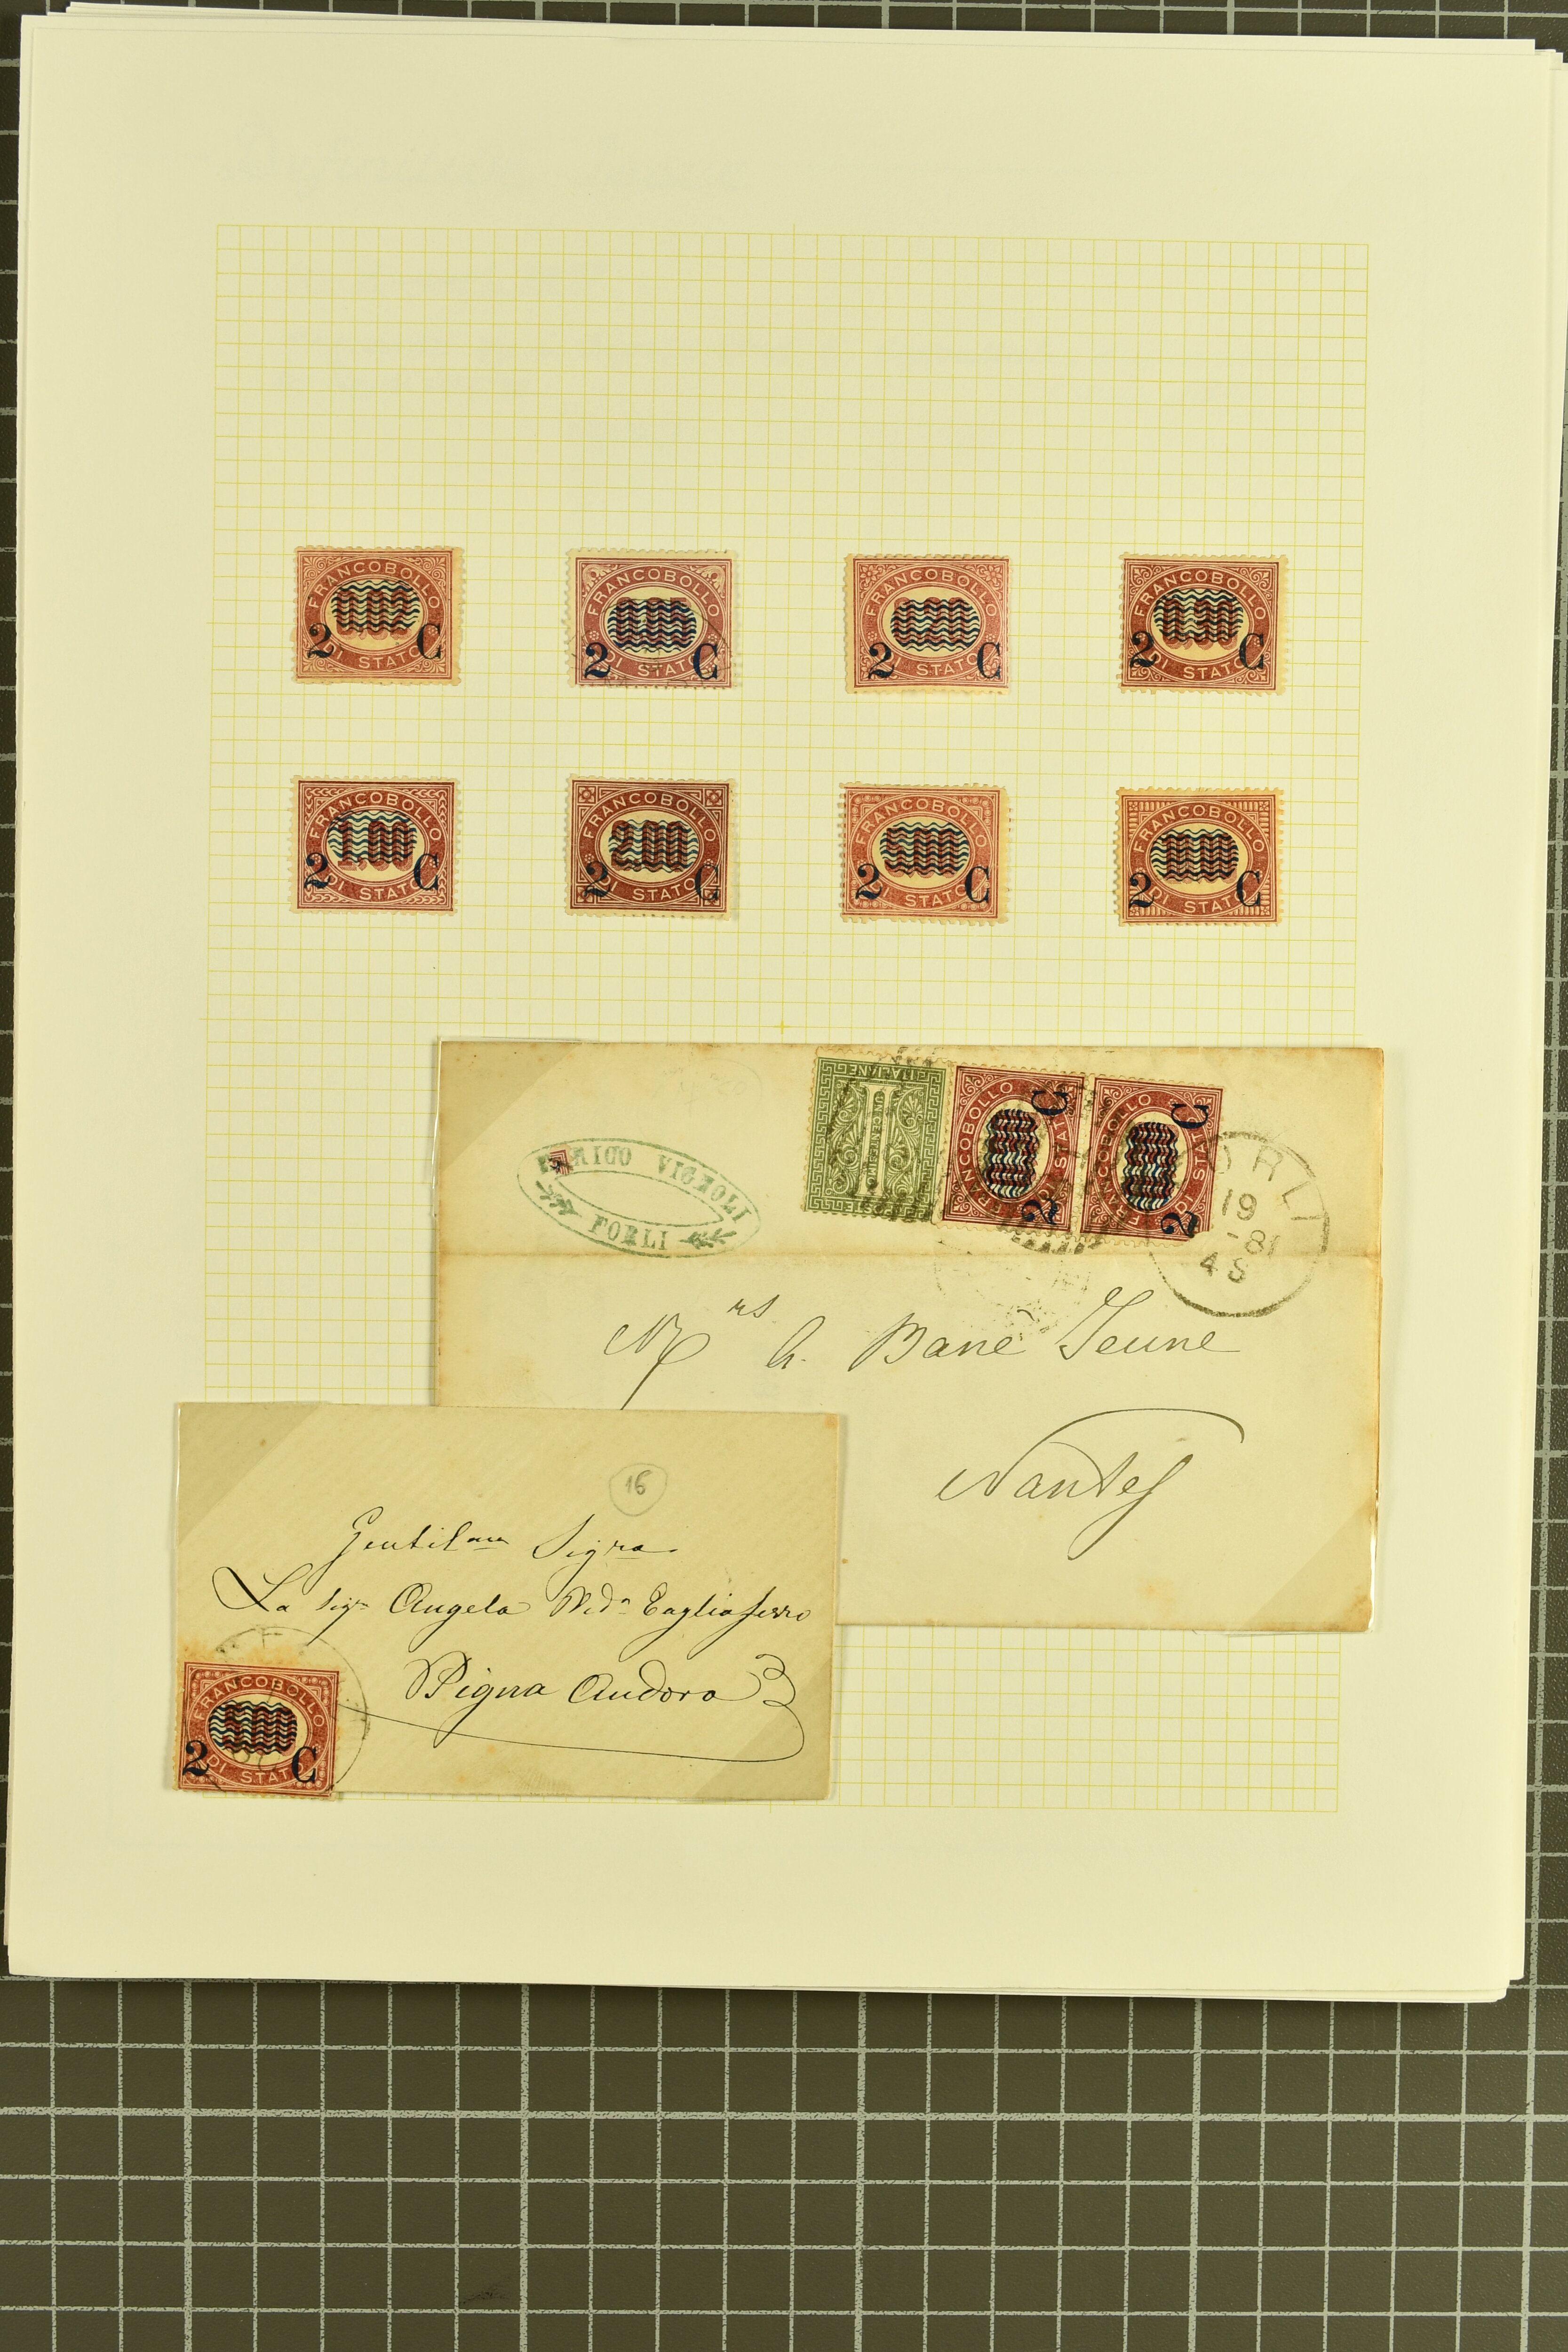 FRANCOBOLLO
0.02
2 C
DI STATO
FRANCOBOLLO
2 C
DI STATO
FRANCOBOLLO
2 C
DI STATO
FRANCOBOLLO
0.30
2 C
DI STATO
FRANCOBOLLO
1.00
2 C
DI STATO
FRANCOBOLLO
2.00
2 C
DI STATO
FRANCOBOLLO
2 C
DI STATO
FRANCOBOLLO
2 C
DI STATO
ENRICO VIGNOLI
FORLI
ITALIANE
UN CENTESIMO
POSTE
FRANCOBOLLO
2 C
DI STATO
FRANCOBOLLO
2 C
DI STATO
FORLI
19
-81
4 S
Mrs
Jeune
Nantes
16
Gentilma Sigra
La Sigra Angela Tagliaferro
Pigna Andora
FRANCOBOLLO
2 C
DI STATO